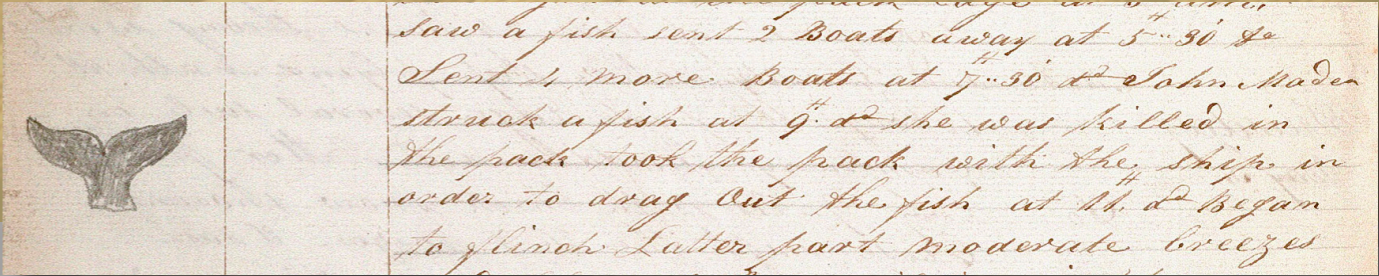 the pack edge at 5 am,
saw a fish sent 2 Boats away at 5H..30' do
Sent 4 more Boats at 7H..30' do John Maden
struck a fish at 9H. do she was killed in
the pack took the pack with the ship in
order to drag Out the fish at 11H. do Began
to flinch Latter part moderate breezes